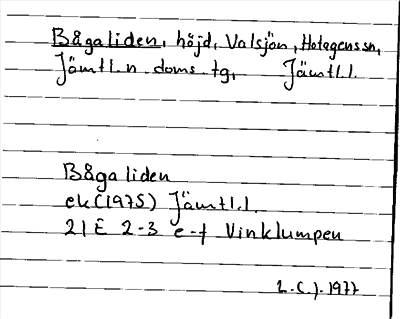 Bågaliden, höjd, Valsjön, Hotagens sn,
Jämtl. n. doms. tg, Jämtl. l.
Bågaliden
ek (1975) Jämtl. l.
21 E 2-3 e-f Vinklumpen
L.C.J. 1977